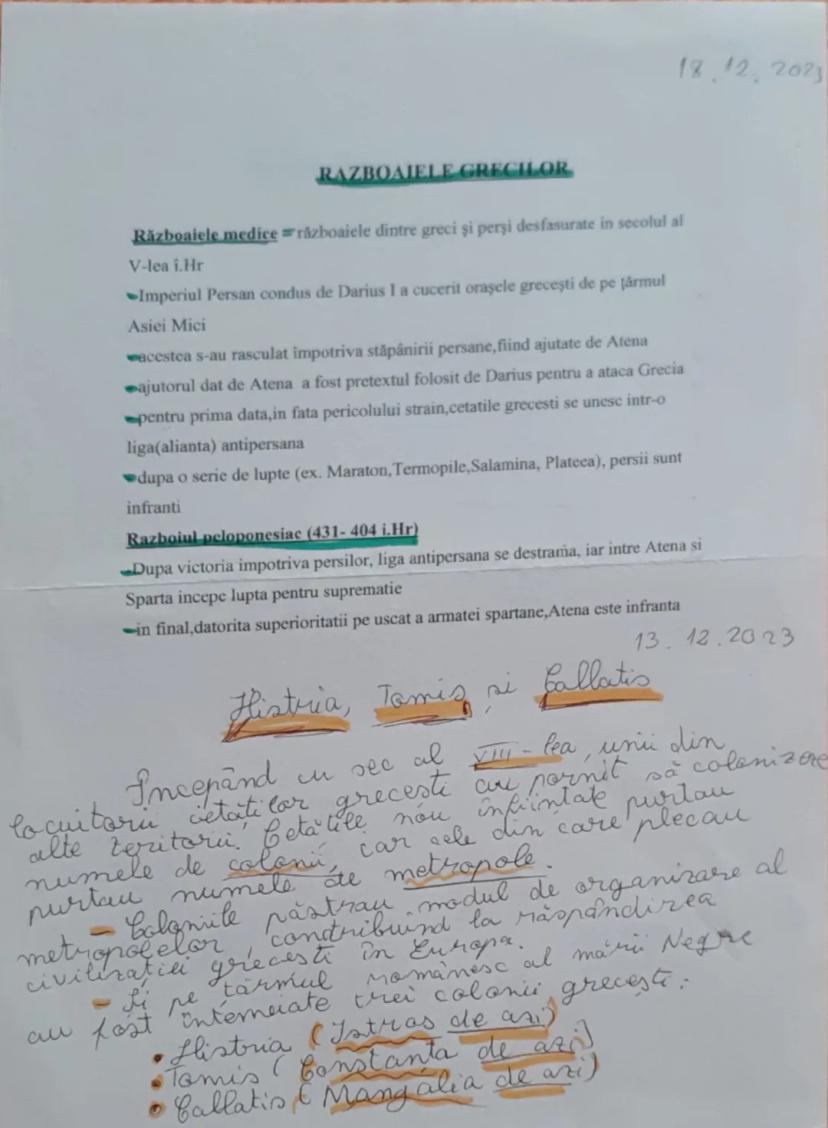 18.12.2023
RAZBOAIELE GRECILOR
Războaiele medice = războaiele dintre greci şi perşi desfasurate in secolul al
V-lea î.Hr
-Imperiul Persan condus de Darius I a cucerit oraşele greceşti de pe ţărmul
Asiei Mici
-acestea s-au rasculat împotriva stăpânirii persane,fiind ajutate de Atena
-ajutorul dat de Atena a fost pretextul folosit de Darius pentru a ataca Grecia
-pentru prima data,in fata pericolului strain,cetatile grecesti se unesc intr-o
liga(alianta) antipersana
-dupa o serie de lupte (ex. Maraton,Termopile,Salamina, Plateea), persii sunt
infranti
Razboiul peloponesiac (431- 404 i.Hr)
-Dupa victoria impotriva persilor, liga antipersana se destrama, iar intre Atena si
Sparta incepe lupta pentru suprematie
-in final,datorita superioritatii pe uscat a armatei spartane,Atena este infranta
13.12.2023
Histria, Tomis și Callatis
Începând cu sec al VIII-lea, unii din
locuitorii cetăților grecești au pornit să colonizeze
alte teritorii. Cetățile nou înființate purtau
numele de colonii, iar cele din care plecau
purtau numele de metropole.
- Coloniile păstrau modul de organizare al
metropolelor, contribuind la răspândirea
civilizației grecești în Europa.
- Și pe țărmul românesc al mării Negre
au fost întemeiate trei colonii grecești:
• Histria (Istros de azi)
• Tomis (Constanta de azi)
• Callatis (Mangalia de azi)